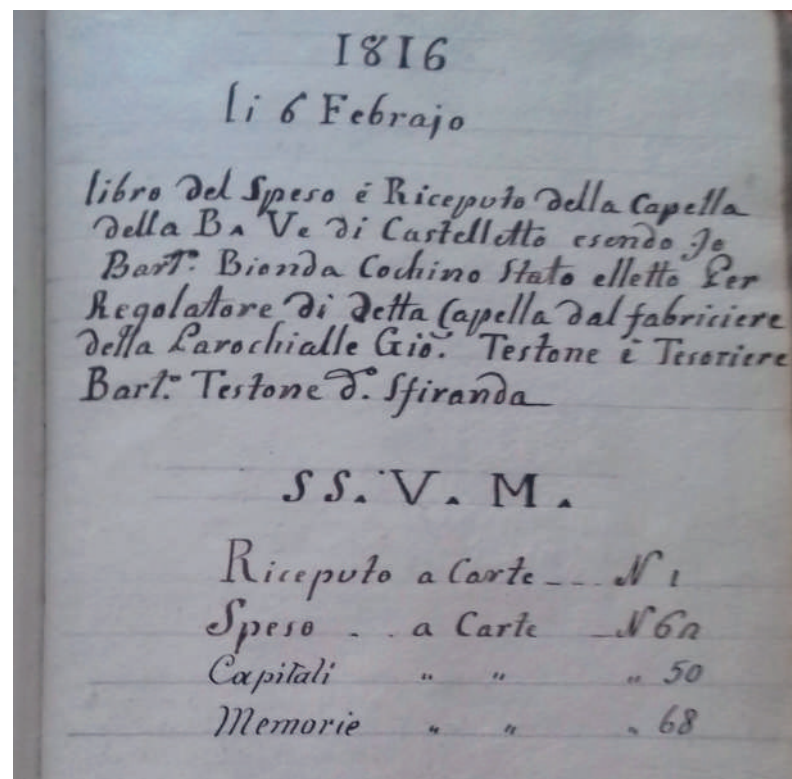 1816
li 6 Febrajo
libro del Speso é Riceputo della Capella
della B. Ve di Castelletto esendo Jo
Bart.º Bionda Cochino Stato elletto Per
Regolatore di detta Capella dal fabriciere
della Parochialle Gio. Testone è Tesoriere
Bart.º Testone d.º Sfiranda
SS. V. M.
Riceputo a Carte N 1
Speso . . a Carte N
Capitali " " " 50
Memorie " " " 68